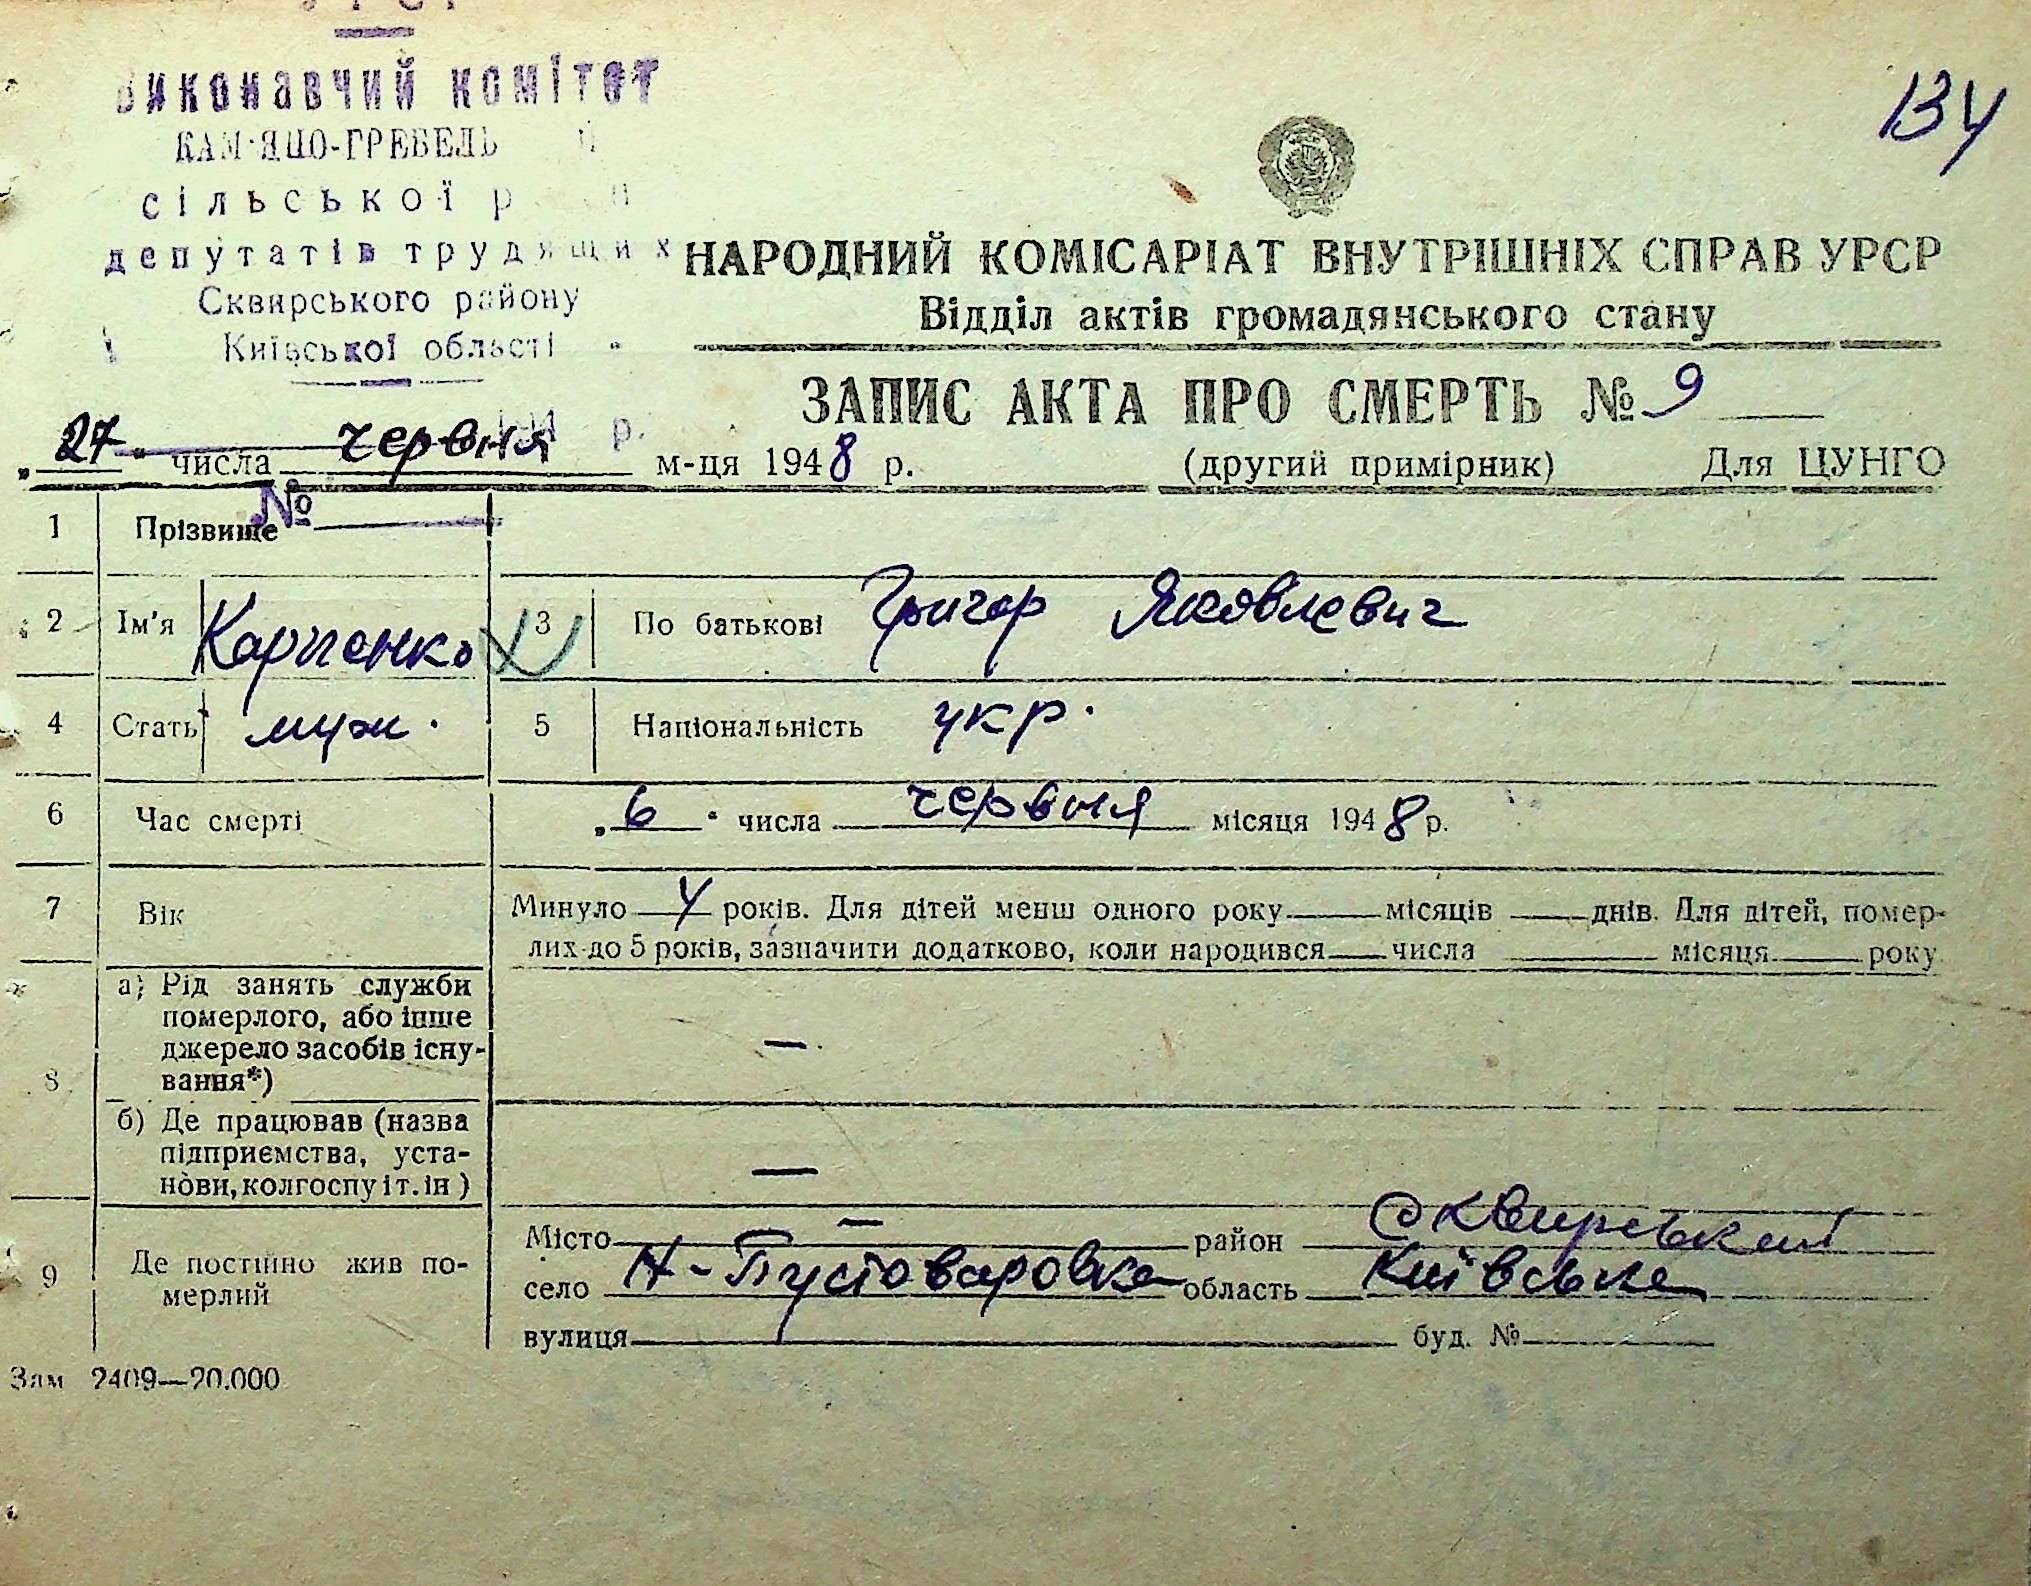 УРСР
Виконавчий комітет
КАМ'ЯНО-ГРЕБЕЛЬ
сільської р
депутатів трудящих
Сквирського району
Київської області
194 р.
№
134
НАРОДНИЙ КОМІСАРІАТ ВНУТРІШНІХ СПРАВ УРСР
Відділ актів громадянського стану
ЗАПИС АКТА ПРО СМЕРТЬ № 9
„27" числа червня м-ця 1948 р. (другий примірник) Для ЦУНГО
1 Прізвище
2 Ім'я Карпенко 3 По батькові Григор Яковлевич
4 Стать муж. 5 Національність укр.
6 Час смерті „6" числа червня місяця 1948 р.
7 Вік Минуло 4 років. Для дітей менш одного року місяців днів. Для дітей, помер-
лих до 5 років, зазначити додатково, коли народився числа місяця року
8 а) Рід занять служби
померлого, або інше
джерело засобів існу-
вання*) —
б) Де працював (назва
підприємства, уста-
нови, колгоспу і т. ін) —
9 Де постійно жив по-
мерлий
Місто — район Сквирський
село Н-Пустоваровка область Київська
вулиця буд. №
Зам 2409—20.000